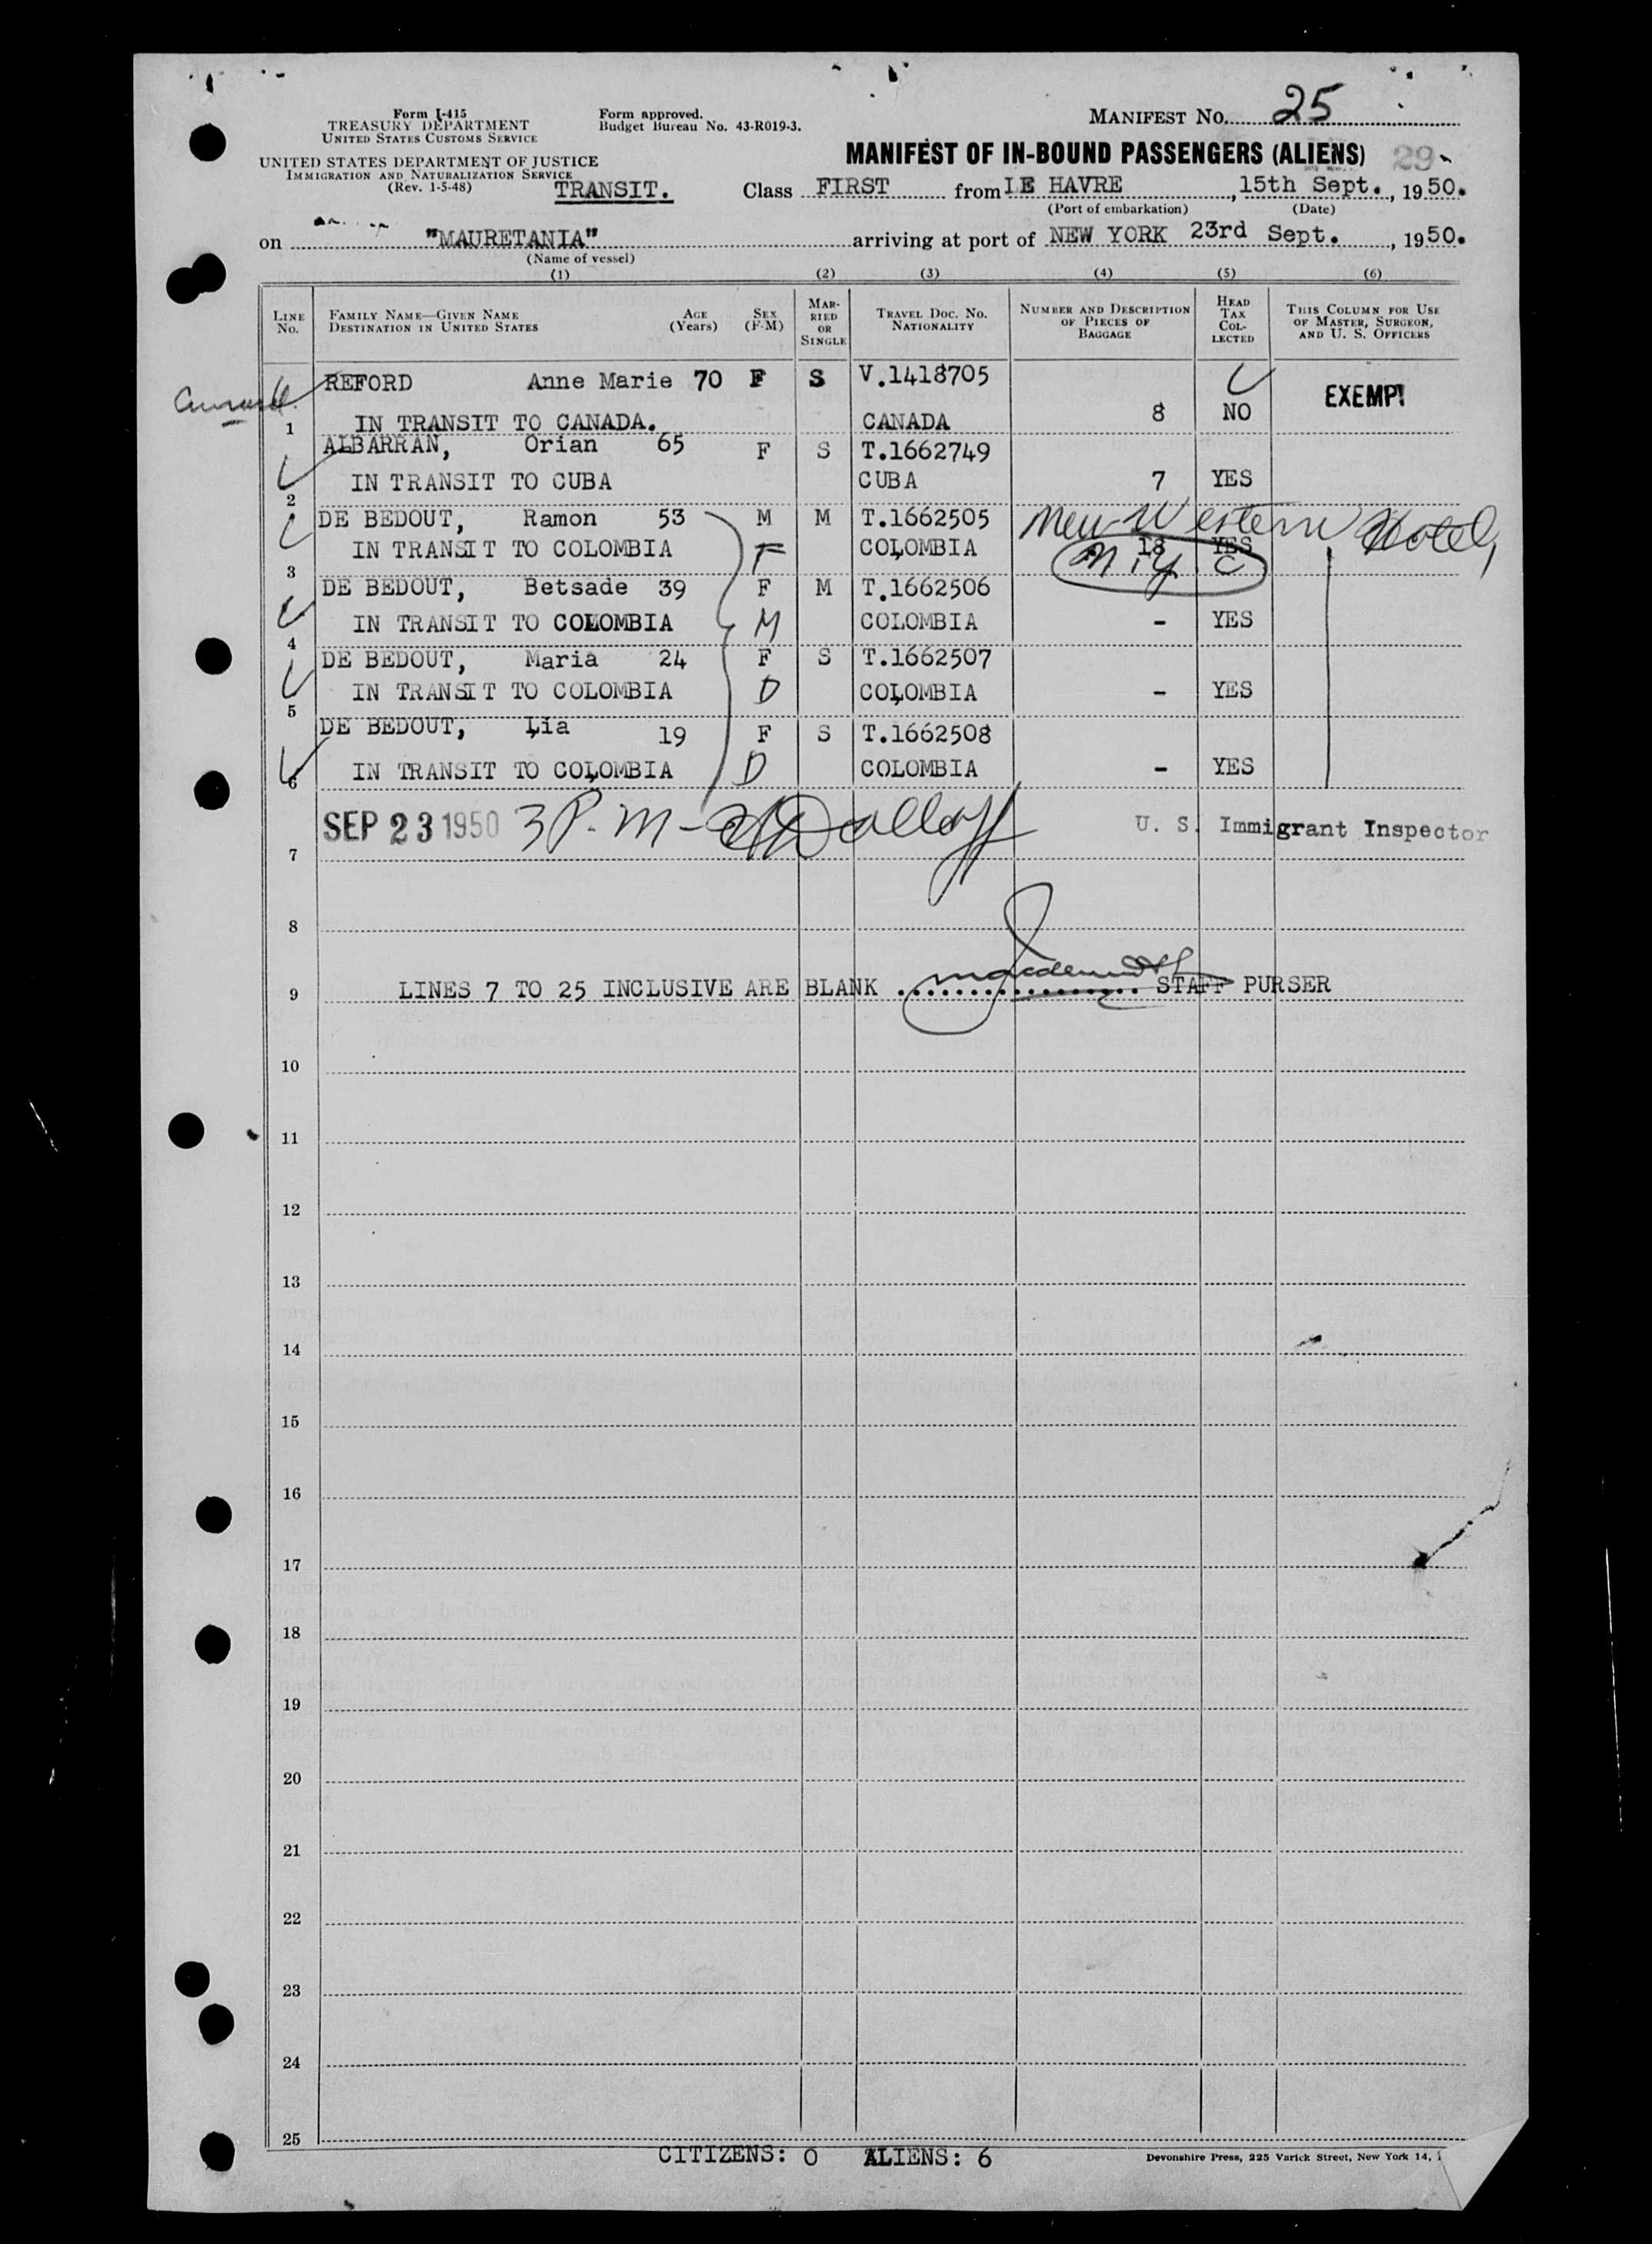 Form I-415
TREASURY DEPARTMENT
UNITED STATES CUSTOMS SERVICE
Form approved.
Budget Bureau No. 43-R019-3.
MANIFEST NO. 25
UNITED STATES DEPARTMENT OF JUSTICE
IMMIGRATION AND NATURALIZATION SERVICE
(Rev. 1-5-48)
MANIFEST OF IN-BOUND PASSENGERS (ALIENS) 29
TRANSIT. Class FIRST from LE HAVRE, 15th Sept., 1950.
(Port of embarkation) (Date)
on "MAURETANIA" arriving at port of NEW YORK 23rd Sept., 1950.
(Name of vessel)
(1) (2) (3) (4) (5) (6)
LINE No. FAMILY NAME—GIVEN NAME DESTINATION IN UNITED STATES AGE (Years) SEX (F-M) MARRIED OR SINGLE TRAVEL DOC. NO. NATIONALITY NUMBER AND DESCRIPTION OF PIECES OF BAGGAGE HEAD TAX COLLECTED THIS COLUMN FOR USE OF MASTER, SURGEON, AND U. S. OFFICERS
REFORD Anne Marie 70 F S V.1418705 EXEMPT
1 IN TRANSIT TO CANADA. CANADA 8 NO
ALBARRAN, Orian 65 F S T.1662749
2 IN TRANSIT TO CUBA CUBA 7 YES
DE BEDOUT, Ramon 53 M M T.1662505 New Western Hotel,
3 IN TRANSIT TO COLOMBIA F COLOMBIA 18 YES N.Y.C
DE BEDOUT, Betsade 39 F M T.1662506
4 IN TRANSIT TO COLOMBIA M COLOMBIA - YES
DE BEDOUT, Maria 24 F S T.1662507
5 IN TRANSIT TO COLOMBIA D COLOMBIA - YES
DE BEDOUT, Lia 19 F S T.1662508
6 IN TRANSIT TO COLOMBIA D COLOMBIA - YES
7 SEP 23 1950 3 P.M- U. S. Immigrant Inspector
8
9 LINES 7 TO 25 INCLUSIVE ARE BLANK .................. STAFF PURSER
10
11
12
13
14
15
16
17
18
19
20
21
22
23
24
25
CITIZENS: 0 ALIENS: 6
Devonshire Press, 225 Varick Street, New York 14,